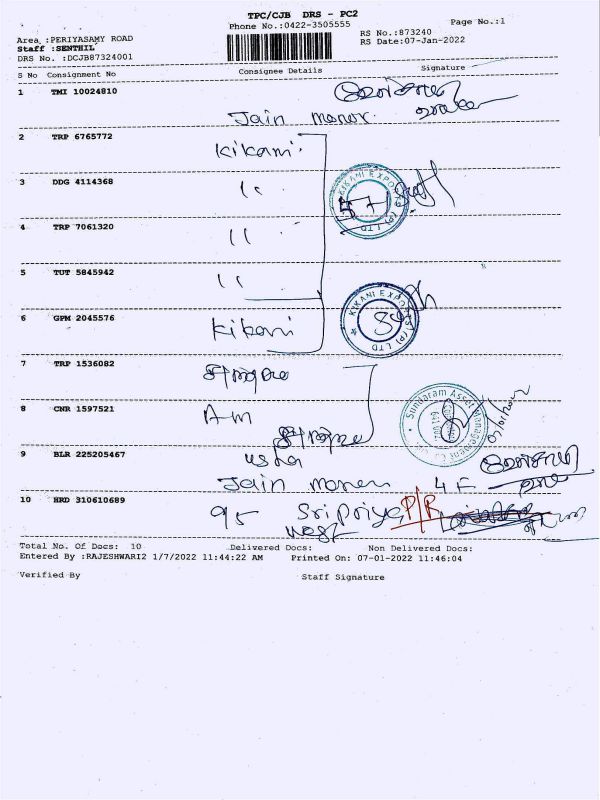 TPC/CJB DRS - PC2
Phone No.:0422-3505555
Page No.:1
Area :PERIYASAMY ROAD
RS No.:873240
Staff :SENTHIL
RS Date:07-Jan-2022
DRS No. :DCJB87324001
S No Consignment No Consignee Details Signature
1 TMI 10024810
Jain manor.
2 TRP 6765772
Kikani.
3 DDG 4114368
"
KIKANI EXPORTS (P) LTD
4 TRP 7061320
"
5 TUT 5845942
"
6 GPM 2045576
Kikani
KIKANI EXPORTS (P) LTD
7 TRP 1536082
8 CNR 1597521
AM
Sundaram Asset Management
9 BLR 225205467
usha
Jain manor 4F
10 HRD 310610689
95 Sri Priya P/R
west
Total No. Of Docs: 10 Delivered Docs: Non Delivered Docs:
Entered By :RAJESHWARI2 1/7/2022 11:44:22 AM Printed On: 07-01-2022 11:46:04
Verified By Staff Signature